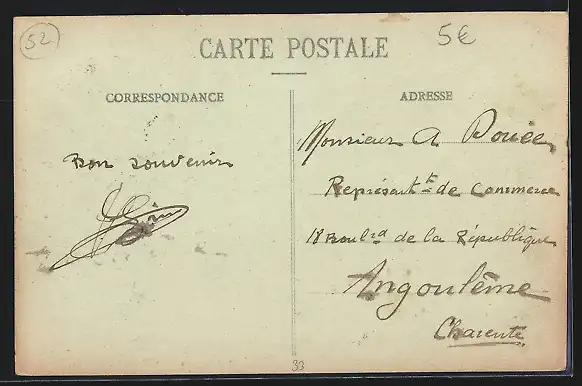 52
5€
CARTE POSTALE
CORRESPONDANCE
ADRESSE
Bon souvenir
Monsieur A
Représentt de Commerce
18 Boulrd de la République
Angoulême
Charente
33